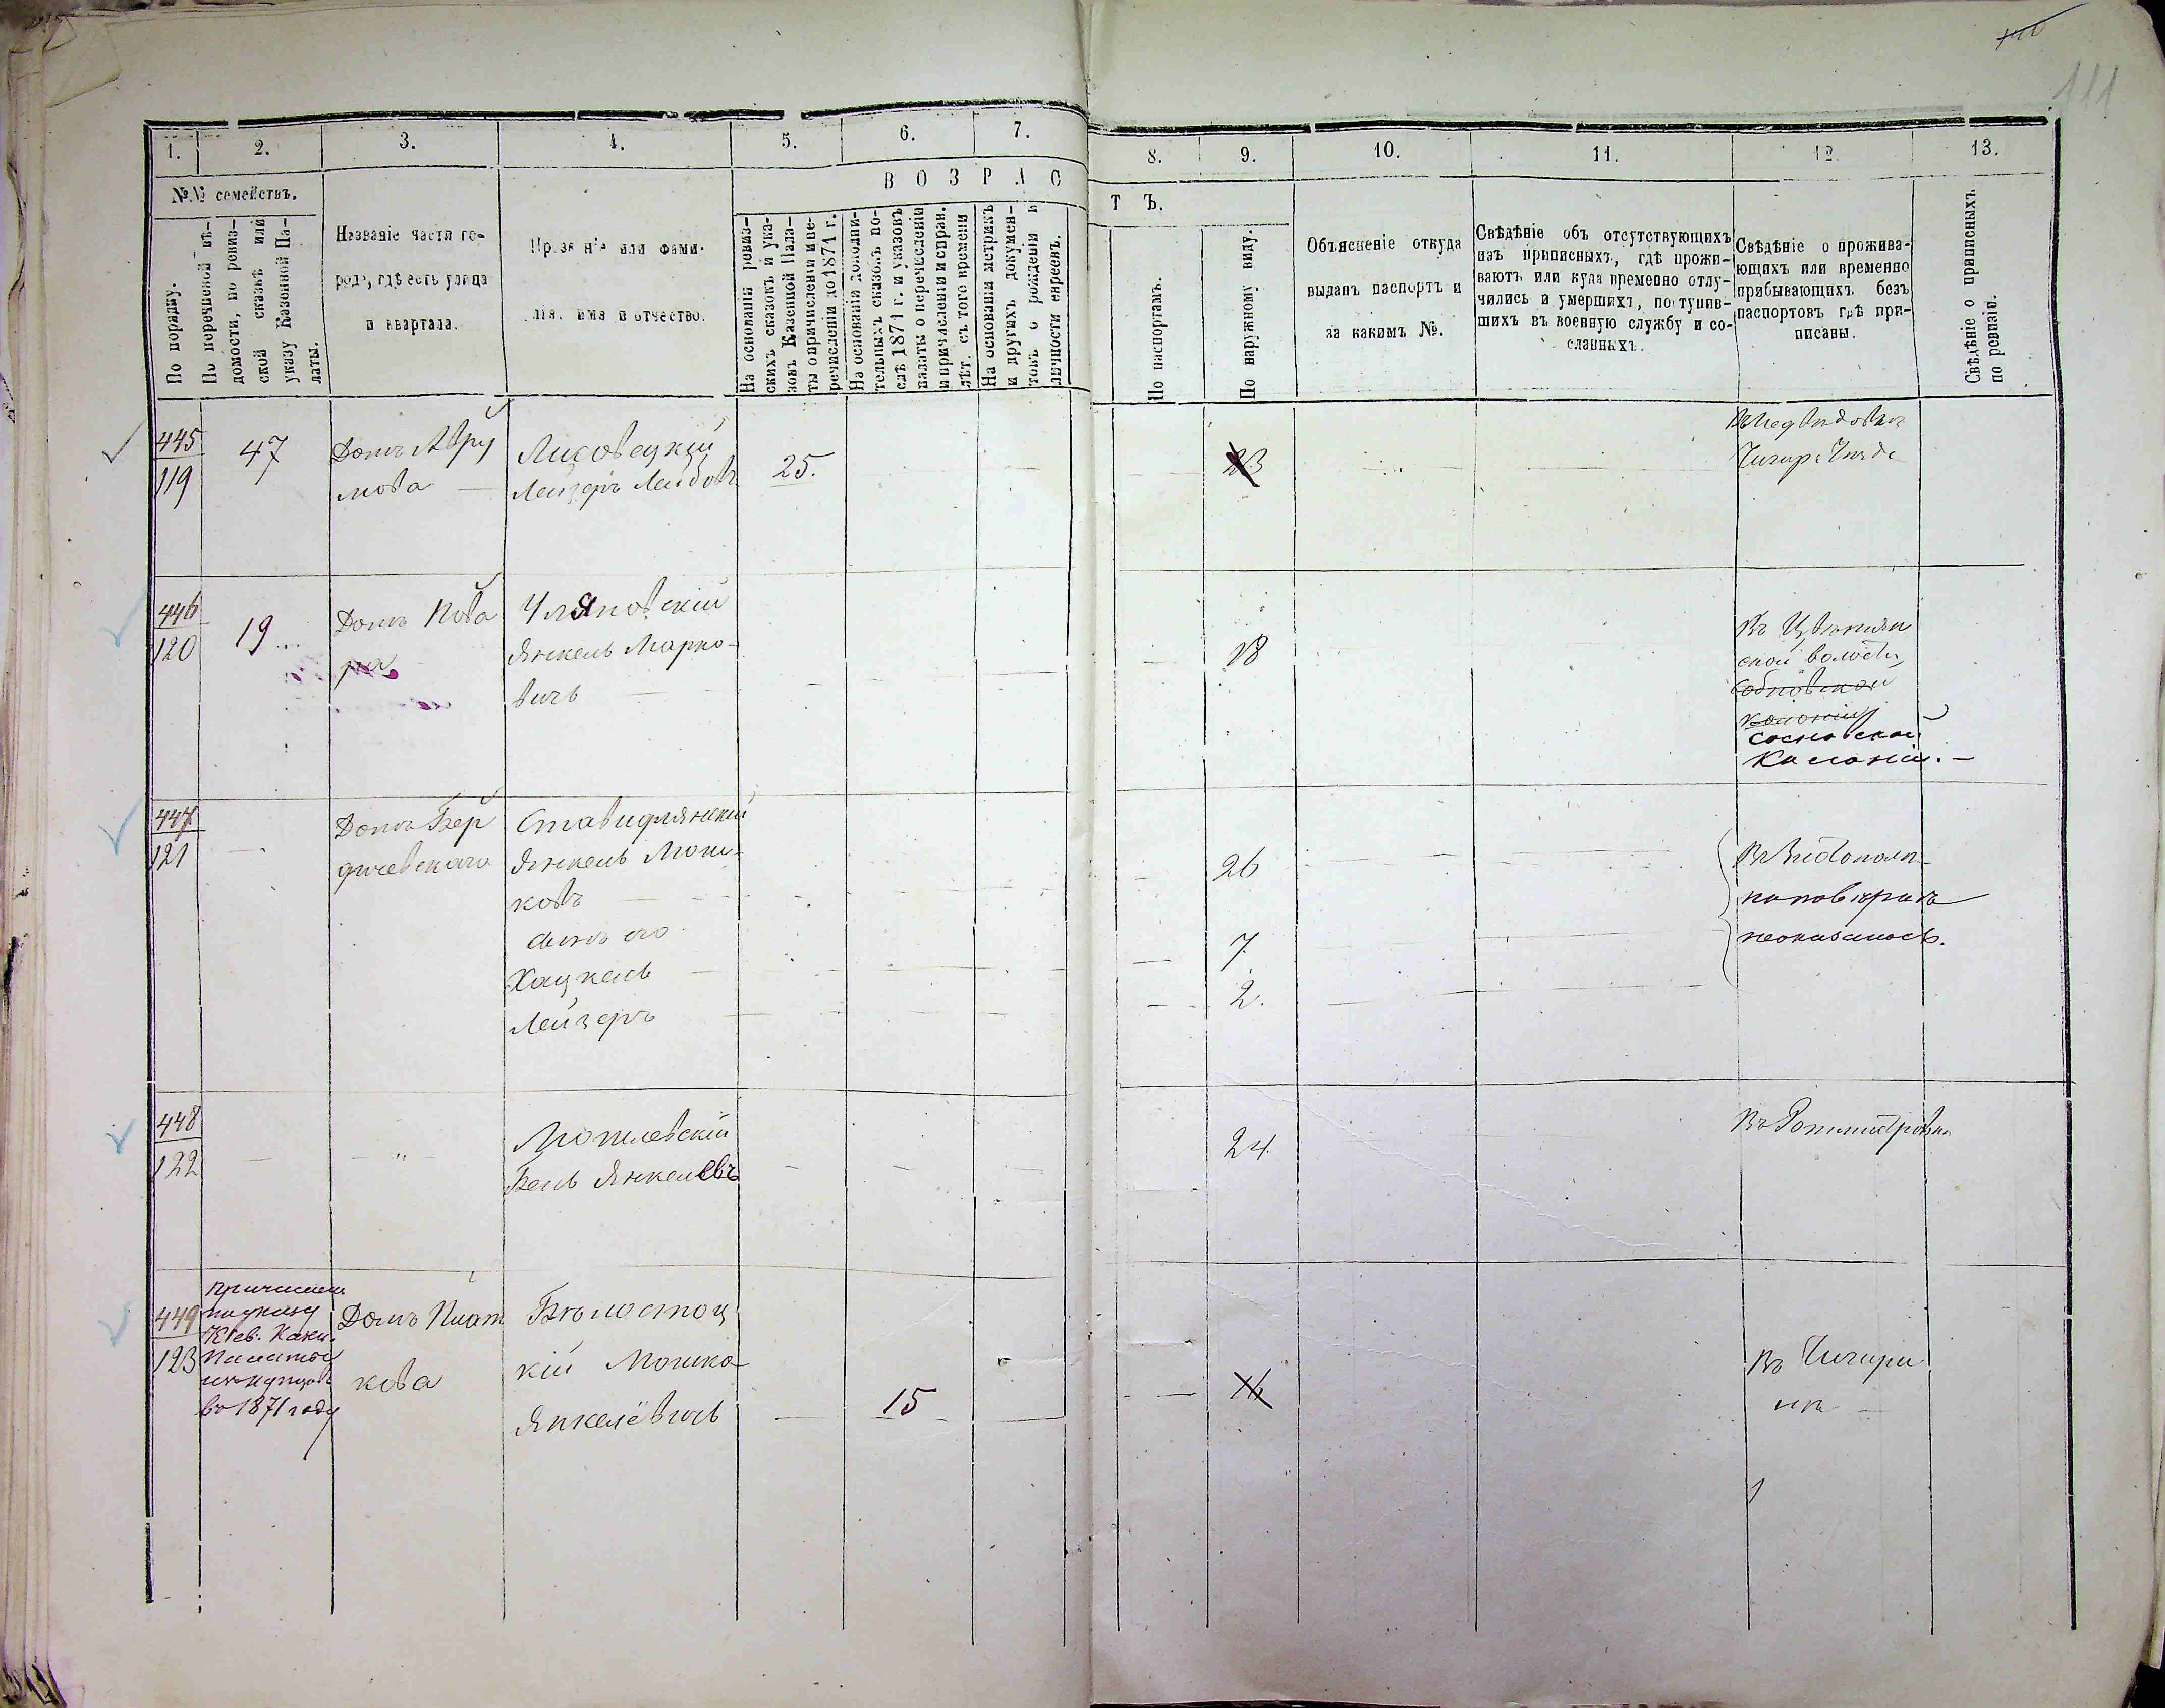 111
1. 2. 3. 4. 5. 6. 7. 8. 9. 10. 11. 12. 13.
№№ семействъ.
По порядку.
По перечневой вѣ-
домости, по ревиз-
ской сказкѣ или
указу Казенной Па-
латы.
Названіе части го-
рода, гдѣ есть улица
и квартала.
Прозваніе или фами-
лія, имя и отчество.
ВОЗРАСТЪ.
На основаніи ревиз-
скихъ сказокъ и ука-
зовъ Казенной Пала-
ты о причисленіи и пе-
речисленіи до 1871 г.
На основаніи дополни-
тельныхъ сказокъ по-
слѣ 1871 г. и указовъ
палаты о перечисленіи
и причисленіи и справ.
лѣт. съ того времени
На основаніи метрикъ
и другихъ докумен-
товъ о рожденіи и
личности евреевъ.
По паспортамъ.
По наружному виду.
Объясненіе откуда
выданъ паспортъ и
за какимъ №.
Свѣдѣніе объ отсутствующихъ
изъ приписныхъ, гдѣ прожи-
ваютъ или куда временно отлу-
чились и умершихъ, поступив-
шихъ въ военную службу и со-
сланныхъ.
Свѣдѣніе о прожива-
ющихъ или временно
прибывающихъ безъ
паспортовъ гдѣ при-
писаны.
Свѣдѣніе о приписныхъ
по ревизіи.
445
119
47
Домъ Абру
мова
Лисовецкій
Лейзеръ Лейбовъ
25.
23
Чигир. Уѣзд
446
120
19
Домъ
Янкель Марко-
вичъ
18
Въ
ской волости
сосновской
Колоніи.
447
121
Домъ Бер
дичевскаго
Ставидлянскій
Янкель Мош-
ковъ
сынъ его
Хацкель
Лейзеръ
26
7
2.
по повѣркѣ
неоказалось.
448
122
"
Могилевскій
Бель Янкелевъ
24
Въ Ротмистровкѣ
449
123
причисленъ
по указу
Кіев. Казен.
Палаты
изъ купцовъ
въ 1871 году
Домъ Плат
кова
Бѣлостоц
кій Мошко
Янкелевичъ
15
16
Въ Чигири
нѣ